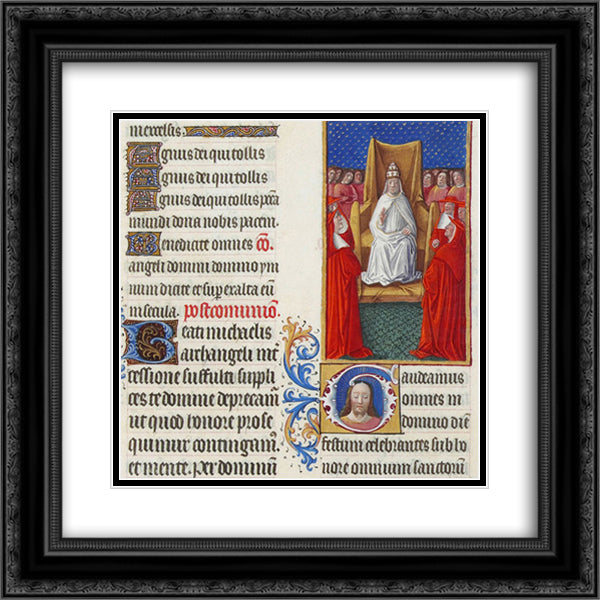 mexcelsis.
Agnus dei qui tollis
Agnus dei qui tollis
Agnus dei qui tollis pcca
mundi dona nobis pacem.
Benedicite omnes
angeli domini domino ym
num dicite et superexalta eū
in secula. Postcomuniō.
Beati michaelis
archangeli
cessione suffulti suppli
ces te domine deprecam̄
ut quod honore prose
quimur contingam̄.
et mente. Per dominū
Gaudeamus
omnes in
domino diē
festum celebrantes sub ho
nore omnium sanctorū